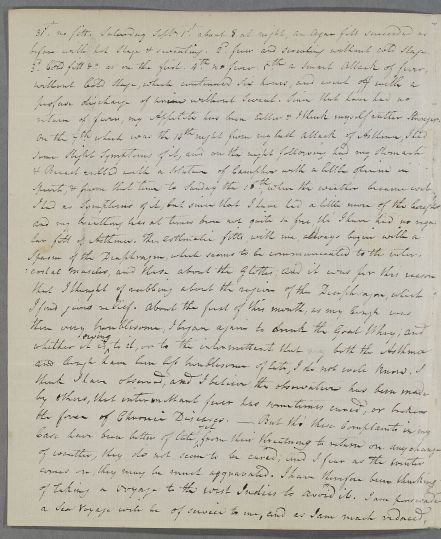 31st no fitt, Saturday Septr 1st about 8 at night, an Ague fitt succeeded as
before with hot Stage & sweating. 2d fever and sweating without cold Stage.
3d Cold fitt &c as on the first. 4th no fever 5th a smart Attack of fever,
without Cold Stage, which continued six hours, and went off with a
profuse discharge of urine without Sweat. Since that have had no
return of fever, my Appetite has been better & I think myself rather Stronger.
On the 7th which was the 15th night from my last attack of Asthma, I had
some Slight Symptoms of it, and on the night following had my Stomach
& Breast rubbed with a Solution of Camphor with a little opium in
Spirits, & from that time to Sunday the 16th when the weather became cool,
I had no Symptoms of it, but since that I have had a little more of the Cough
and my breathing has at times been not quite so free tho' I have had no regu
lar fitts of Asthma. The asthmatic fitts with me always begin with a
Spasm of the Diaphragm, which seems to be communicated to the inter
costal muscles, and those about the Glottis, and it was for this reason
that I thought of rubbing about the region of the Diaphragm, which
I find gives relief. About the first of this month, as my Cough was
then very troublesome, I began again to drink the Goat Whey, and
whether it is owing to it, or to the intermittent that both the Asthma
and Cough have been less troublesome of late, I do not well know. I
think I have observed, and I believe the observation has been made
by others, that intermittent fever has sometimes cured, or broken
the force of Chronic Diseases. — But tho' these Complaints in my
Case have been better of late, yet from their threatening to return on any change
of weather, they do not seem to be cured, and I fear as the winter
comes on, they may be much aggravated. I have therefore been thinking
of taking a Voyage to the West Indies to avoid it. I am persuaded
a Sea Voyage will be of service to me, and as I am much reduced,